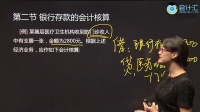 会计汇
第二节 银行存款的会计核算
[例] 某基层医疗卫生机构收到门诊收入
中有支票一张,金额为2800元。根据上述
经济业务,应作如下会计核算:
借:银行存
贷:医